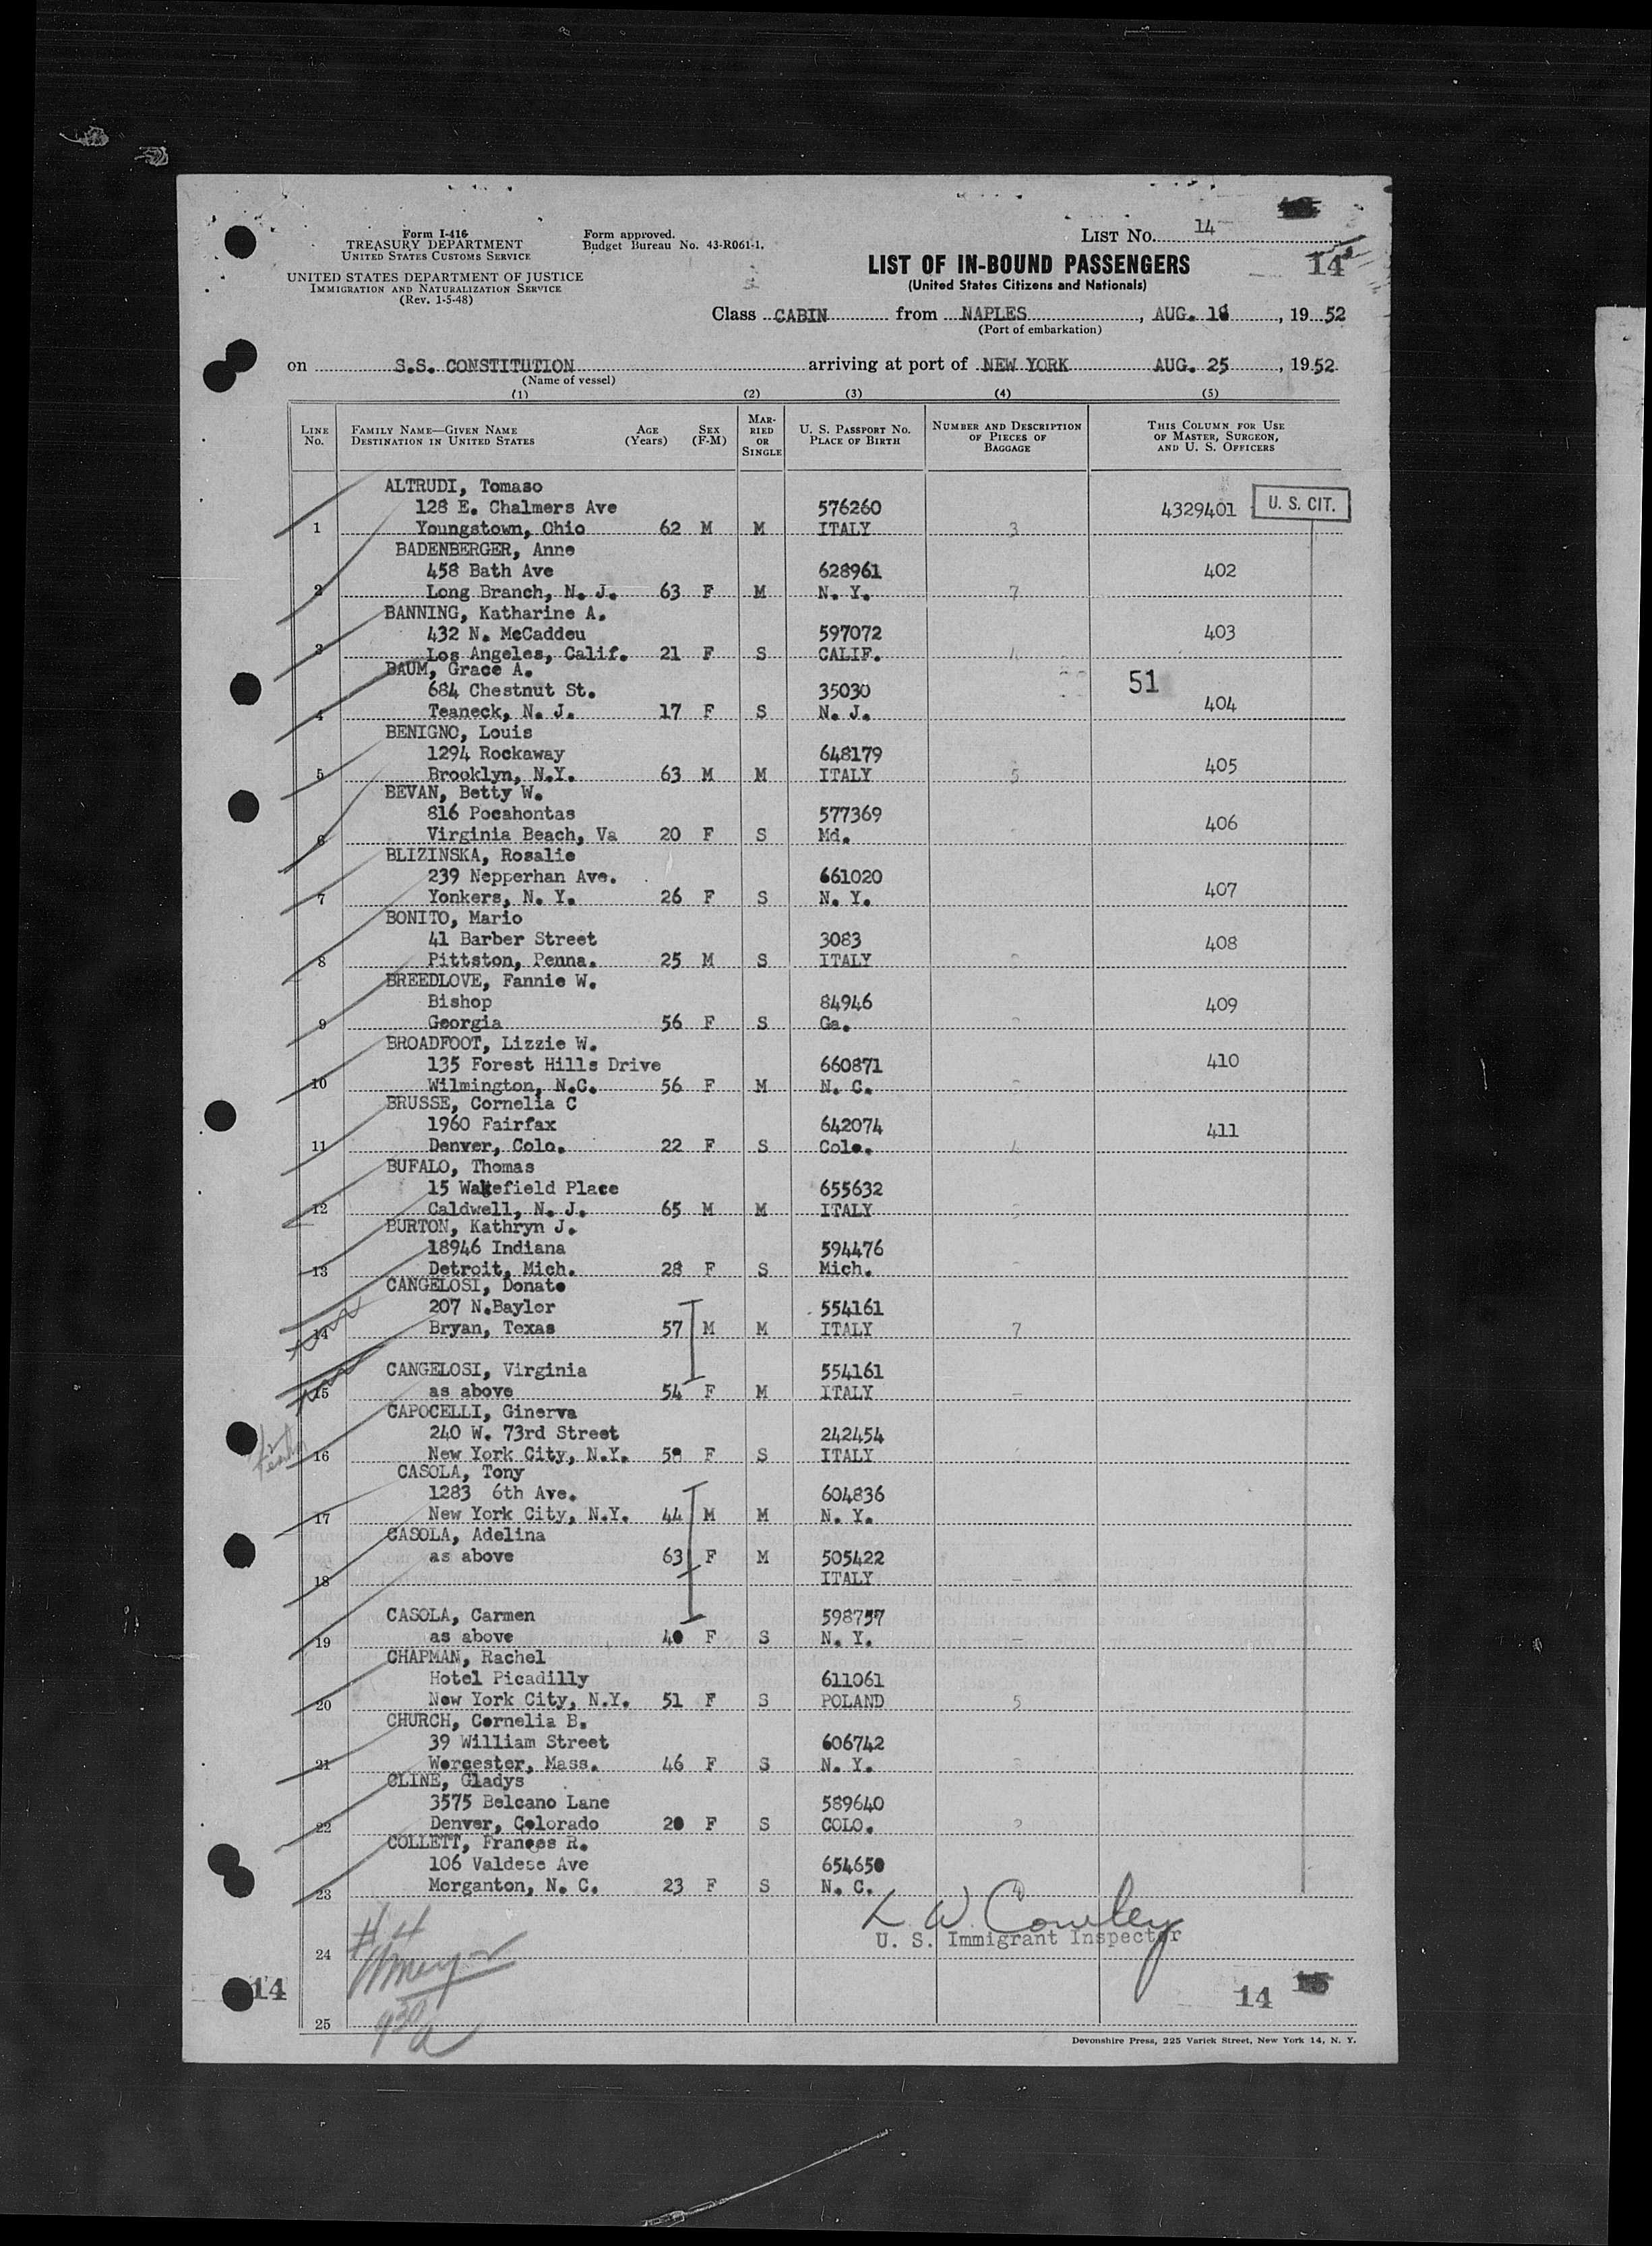 Form I-416
TREASURY DEPARTMENT
UNITED STATES CUSTOMS SERVICE
UNITED STATES DEPARTMENT OF JUSTICE
IMMIGRATION AND NATURALIZATION SERVICE
(Rev. 1-5-48)
Form approved.
Budget Bureau No. 43-R061-1.
LIST No. 14
14
LIST OF IN-BOUND PASSENGERS
(United States Citizens and Nationals)
Class CABIN from NAPLES, AUG. 18, 19 52
(Port of embarkation)
on S.S. CONSTITUTION arriving at port of NEW YORK AUG. 25, 1952
(Name of vessel)
(1) (2) (3) (4) (5)
LINE No. FAMILY NAME—GIVEN NAME DESTINATION IN UNITED STATES AGE (Years) SEX (F-M) MARRIED OR SINGLE U. S. PASSPORT NO. PLACE OF BIRTH NUMBER AND DESCRIPTION OF PIECES OF BAGGAGE THIS COLUMN FOR USE OF MASTER, SURGEON, AND U. S. OFFICERS
ALTRUDI, Tomaso
128 E. Chalmers Ave 576260 4329401 U. S. CIT.
1 Youngstown, Ohio 62 M M ITALY 3
BADENBERGER, Anne
458 Bath Ave 628961 402
2 Long Branch, N. J. 63 F M N. Y. 7
BANNING, Katharine A.
432 N. McCaddeu 597072 403
3 Los Angeles, Calif. 21 F S CALIF. 4
BAUM, Grace A.
684 Chestnut St. 35030 51 404
4 Teaneck, N. J. 17 F S N. J.
BENIGNO, Louis
1294 Rockaway 648179 405
5 Brooklyn, N.Y. 63 M M ITALY 5
BEVAN, Betty W.
816 Pocahontas 577369 406
6 Virginia Beach, Va 20 F S Md.
BLIZINSKA, Rosalie
239 Nepperhan Ave. 661020 407
7 Yonkers, N. Y. 26 F S N. Y.
BONITO, Mario
41 Barber Street 3083 408
8 Pittston, Penna. 25 M S ITALY
BREEDLOVE, Fannie W.
Bishop 84946 409
9 Georgia 56 F S Ga.
BROADFOOT, Lizzie W.
135 Forest Hills Drive 660871 410
10 Wilmington, N.C. 56 F M N. C.
BRUSSE, Cornelia C
1960 Fairfax 642074 411
11 Denver, Colo. 22 F S Colo. 4
BUFALO, Thomas
15 Wakefield Place 655632
12 Caldwell, N. J. 65 M M ITALY
BURTON, Kathryn J.
18946 Indiana 594476
13 Detroit, Mich. 28 F S Mich.
CANGELOSI, Donato
207 N.Baylor 554161
14 Bryan, Texas 57 M M ITALY 7
CANGELOSI, Virginia 554161
15 as above 54 F M ITALY —
CAPOCELLI, Ginerva
240 W. 73rd Street 242454
16 New York City, N.Y. 58 F S ITALY
CASOLA, Tony
1283 6th Ave. 604836
17 New York City, N.Y. 44 M M N. Y.
CASOLA, Adelina
as above 63 F M 505422
18 ITALY —
CASOLA, Carmen 598757
19 as above 40 F S N. Y. —
CHAPMAN, Rachel
Hotel Picadilly 611061
20 New York City, N.Y. 51 F S POLAND 5
CHURCH, Cornelia B.
39 William Street 606742
21 Worcester, Mass. 46 F S N. Y.
CLINE, Gladys
3575 Belcano Lane 589640
22 Denver, Colorado 20 F S COLO.
COLLETT, Frances R.
106 Valdese Ave 654650
23 Morganton, N. C. 23 F S N. C. 4
L. W. Cowley
U. S. Immigrant Inspector
24
#4
930 a
14
14 15
25
Devonshire Press, 225 Varick Street, New York 14, N. Y.